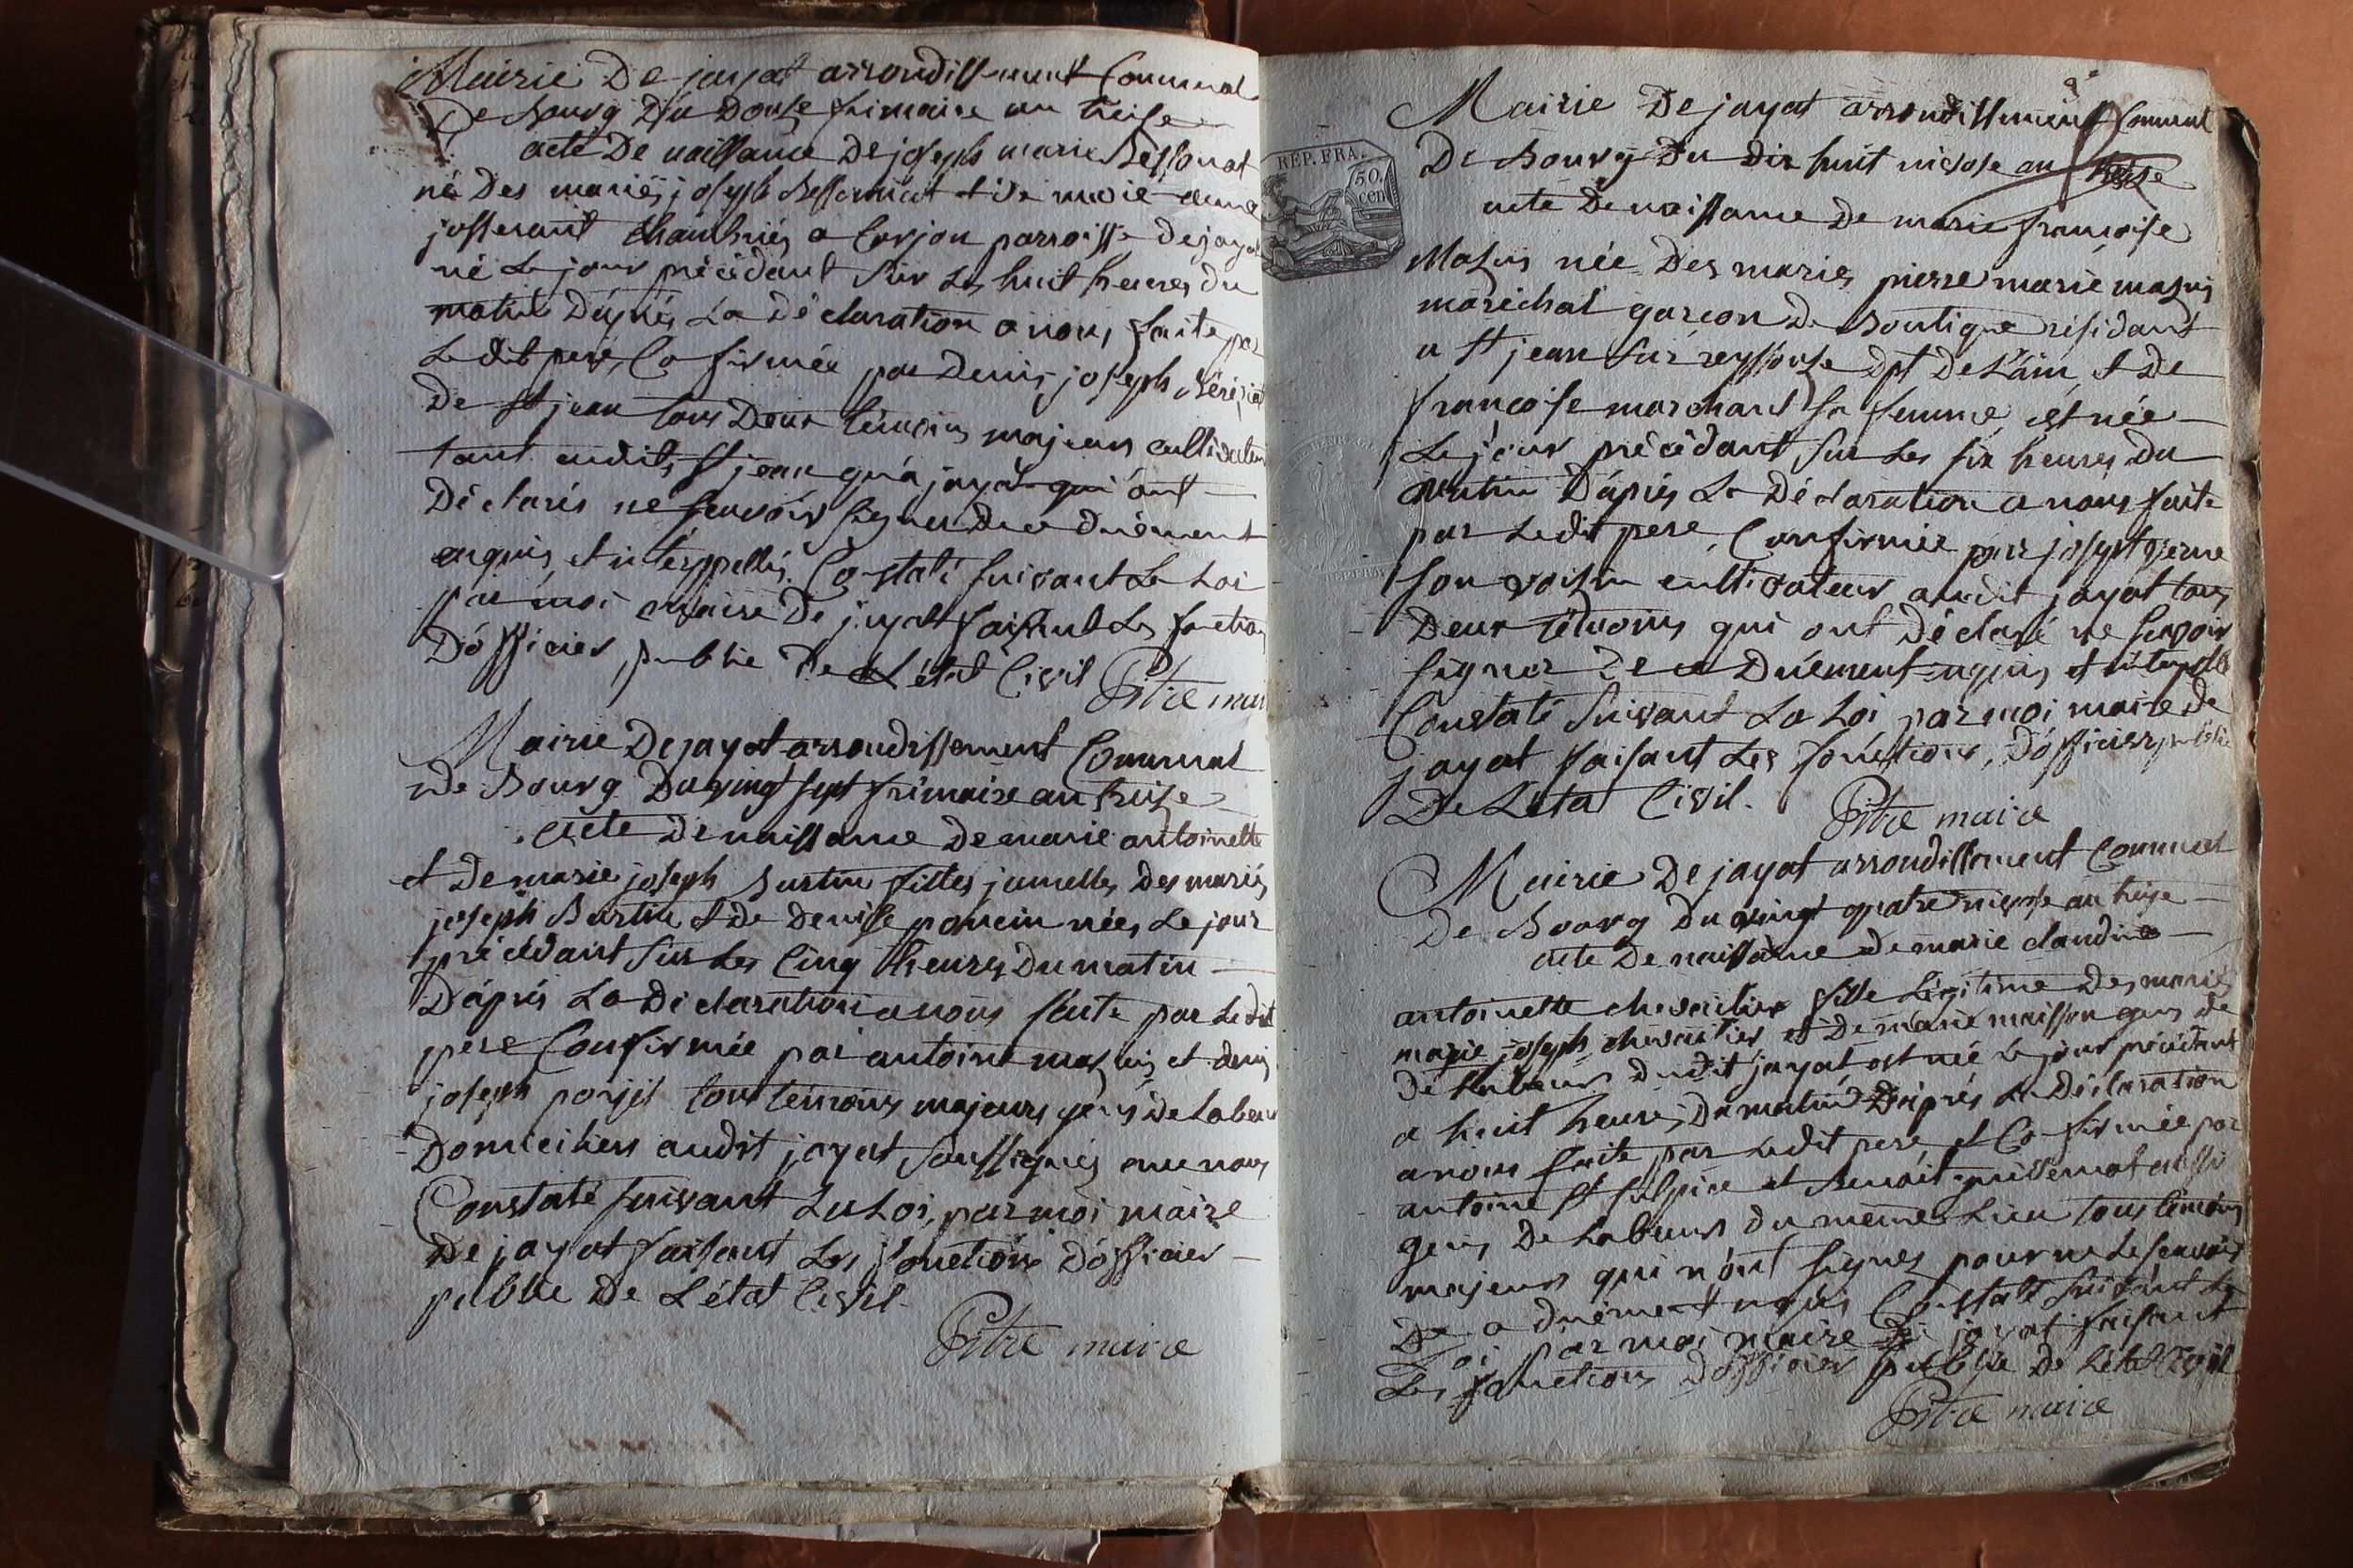 Mairie De jayat arrondissement Communal
De Bourg Du Douze frimaire an treise
acte De naissance De joseph marie Bessonat
né Des mariés joseph Bessonnat et De marie
josserant a Corjon parroisse De jayat
né Le jour précédant sur Les huit heures du
matin D'aprés La Déclaration a nous faite par
Le dit pere, Cofirmée par Denis joseph
De st jean tous Deux témoins majeurs cultivateurs
tant audit st jean qu'a jayat qui ont
Déclarés ne scavoir signer De ce duëment
enquis et interppellés. Constaté suivant La Loi
par moi maire De jayat faisant Les fonctions
D'officier public De L'état Civil Pitre maire
Mairie De jayat arrondissement Communal
De Bourg Du vingt sept frimaire an treise
acte De naissance De marie antoinette
et De marie joseph Burtin filles jumelles Des mariés
joseph Burtin et De Denise poncin nées Le jour
précédant sur Les Cinq heures Du matin
D'aprés La Déclaration a nous faite par Le dit
pere Confirmée par antoine mathis et denis
joseph tous témoins majeurs gens De Labeur
Domiciliers audit jayat soussignés avec nous
Constaté suivant La Loi, par moi maire
De jayat faisant Les fonctions D'officier
public De L'état Civil.
Pitre maire
9e
REP. FRA.
50.
cen
Mairie De jayat arrondissement Communal
De Bourg Du Dix huit nivose an treise
acte De naissance De marie françoise
née Des mariés pierre marie
maréchal garçon De Boutique résidant
a st jean sur reyssouse Dpt De L'ain, et De
françoise marchand sa femme, est née
Le jour précédant sur Les six heures Du
matin D'aprés La Déclaration a nous faite
par Le dit pere, Confirmée par joseph
son voisin cultivateur audit jayat tous
Deux témoins qui ont Déclaré ne scavoir
signer De ce Duëment enquis et interpellé
Constaté suivant La Loi par moi maire de
jayat faisant Les fonctions, D'officier public
De L'éta Civil. Pitre maire
Mairie De jayat arrondissement Communal
De Bourg Du vingt quatre nivose an treise
acte De naissance De marie claudine
antoinette chevaitier fille Légitime Des mariés
marie joseph chevaitier et De marie maisson gens de
De Labeur dudit jayat est née Le jour précédant
a huit heures Du matin D'aprés La Déclaration
a nous faite par Ledit pere et Cofirmée par
antoine st sulpice et Benoit guillemot aussi
gens De Labeurs du même Lieu tous témoins
majeurs qui n'ont signés pour ne Le scavoir
De ce duëment enquis Constaté suivant La
Loi par moi maire De jayat faisant
Les fonctions D'officier public De L'état Civil
Pitre maire